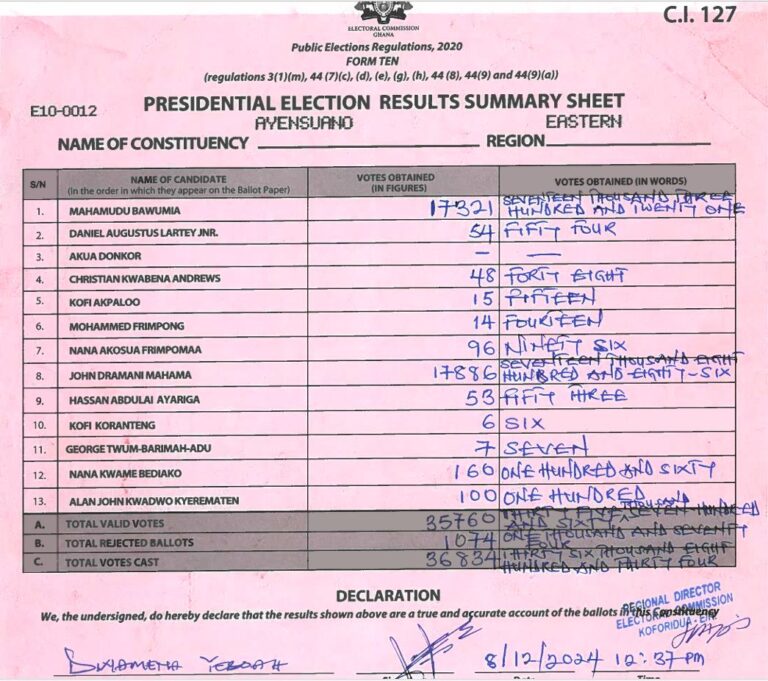 C.I. 127
ELECTORAL COMMISSION
GHANA
Public Elections Regulations, 2020
FORM TEN
(regulations 3(1)(m), 44 (7)(c), (d), (e), (g), (h), 44 (8), 44(9) and 44(9)(a))
E10-0012
PRESIDENTIAL ELECTION RESULTS SUMMARY SHEET
NAME OF CONSTITUENCY AYENSUANO REGION EASTERN
S/N NAME OF CANDIDATE (In the order in which they appear on the Ballot Paper) VOTES OBTAINED (IN FIGURES) VOTES OBTAINED (IN WORDS)
1. MAHAMUDU BAWUMIA 17321 SEVENTEEN THOUSAND THREE HUNDRED AND TWENTY ONE
2. DANIEL AUGUSTUS LARTEY JNR. 54 FIFTY FOUR
3. AKUA DONKOR – —
4. CHRISTIAN KWABENA ANDREWS 48 FORTY EIGHT
5. KOFI AKPALOO 15 FIFTEEN
6. MOHAMMED FRIMPONG 14 FOURTEEN
7. NANA AKOSUA FRIMPOMAA 96 NINETY SIX
8. JOHN DRAMANI MAHAMA 17886 SEVENTEEN THOUSAND EIGHT HUNDRED AND EIGHTY-SIX
9. HASSAN ABDULAI AYARIGA 53 FIFTY THREE
10. KOFI KORANTENG 6 SIX
11. GEORGE TWUM-BARIMAH-ADU 7 SEVEN
12. NANA KWAME BEDIAKO 160 ONE HUNDRED AND SIXTY
13. ALAN JOHN KWADWO KYEREMATEN 100 ONE HUNDRED
A. TOTAL VALID VOTES 35760 THIRTY FIVE THOUSAND SEVEN HUNDRED AND SIXTY
B. TOTAL REJECTED BALLOTS 1074 ONE THOUSAND AND SEVENTY FOUR
C. TOTAL VOTES CAST 36834 THIRTY SIX THOUSAND EIGHT HUNDRED AND THIRTY FOUR
DECLARATION
We, the undersigned, do hereby declare that the results shown above are a true and accurate account of the ballots in this Constituency
REGIONAL DIRECTOR
ELECTORAL COMMISSION
KOFORIDUA - E/R
8/12/2024 12:37pm